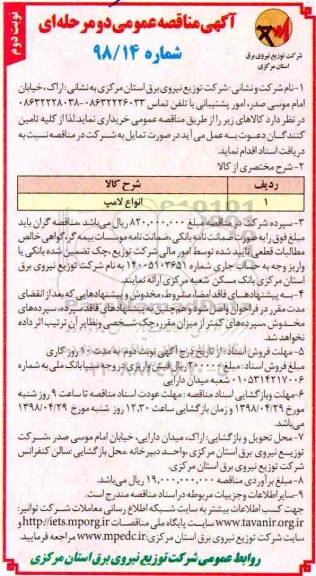 آگهی مناقصه عمومی دو مرحله ای
شماره ۹۸/۱۴
نوبت دوم
شرکت توزیع نیروی برق
استان مرکزی
۱-نام شرکت و نشانی: شرکت توزیع نیروی برق استان مرکزی به نشانی: اراک، خیابان
امام موسی صدر، امور پشتیبانی با تلفن تماس ۰۸۶۳۲۲۲۶۰۳۳-۰۸۶۳۲۲۲۸۰۳۸
در نظر دارد کالاهای زیر را از طریق مناقصه عمومی خریداری نماید. لذا از کلیه تامین
کنندگان دعوت به عمل می آید در صورت تمایل به شرکت در مناقصه نسبت به
دریافت اسناد اقدام نماید.
۲-شرح مختصری از کالا
ردیف شرح کالا
۱ انواع لامپ
۳-سپرده شرکت در مناقصه مبلغ ۸۲۰,۰۰۰,۰۰۰ ریال می باشد. مناقصه گران باید
مبلغ فوق را به صورت ضمانت نامه بانکی، ضمانت نامه موسسات بیمه گر، گواهی خالص
مطالبات قطعی تایید شده توسط امور مالی شرکت توزیع، چک تضمین شده بانکی یا
واریز وجه به حساب جاری شماره ۱۴۰۰۵۱۰۳۶۵۱ به نام شرکت توزیع نیروی برق
استان مرکزی بانک مسکن شعبه مرکزی ارائه نمایند.
۴-به پیشنهادهای فاقد امضا، مشروط، مخدوش و پیشنهادهایی که بعد از انقضای
مدت مقرر در فراخوان واصل شود و همچنین به پیشنهادهای فاقد سپرده، سپرده های
مخدوش، سپرده های کمتر از میزان مقرر، چک شخصی و نظایر آن ترتیب اثر داده
نخواهد شد.
۵-مهلت فروش اسناد: از تاریخ درج آگهی نوبت دوم به مدت ۱۰ روز کاری
مبلغ فروش اسناد: مبلغ ۲۰۰۰۰۰ ریال فیش واریزی در وجه سیبا بانک ملی به شماره
۰۱۰۵۳۱۴۲۱۷۰۰۶ شعبه میدان دارایی
۶-مهلت و بازگشایی اسناد مناقصه: مهلت عودت اسناد مناقصه تا ساعت ۹ روز شنبه
مورخ ۱۳۹۸/۰۴/۲۹ و زمان بازگشایی ساعت ۱۲.۳۰ روز شنبه مورخ ۱۳۹۸/۰۴/۲۹
می باشد.
۷-محل تحویل و بازگشایی: اراک، میدان دارایی، خیابان امام موسی صدر، شرکت
توزیع نیروی برق استان مرکزی، واحد دبیرخانه محل بازگشایی: سالن کنفرانس
شرکت توزیع نیروی برق استان مرکزی.
۸-مبلغ برآوردی مناقصه ۱۹,۰۰۰,۰۰۰,۰۰۰ ریال می باشد.
۹-سایر اطلاعات و جزییات مربوطه در اسناد مناقصه مندرج است.
جهت کسب اطلاعات بیشتر به سایت شبکه اطلاع رسانی معاملات شرکت توانیر:
www.tavanir.org.ir سایت پایگاه ملی مناقصات http://iets.mporg.ir و
سایت شرکت توزیع نیروی برق استان مرکزی www.mpedc.ir مراجعه فرمایید.
روابط عمومی شرکت توزیع نیروی برق استان مرکزی